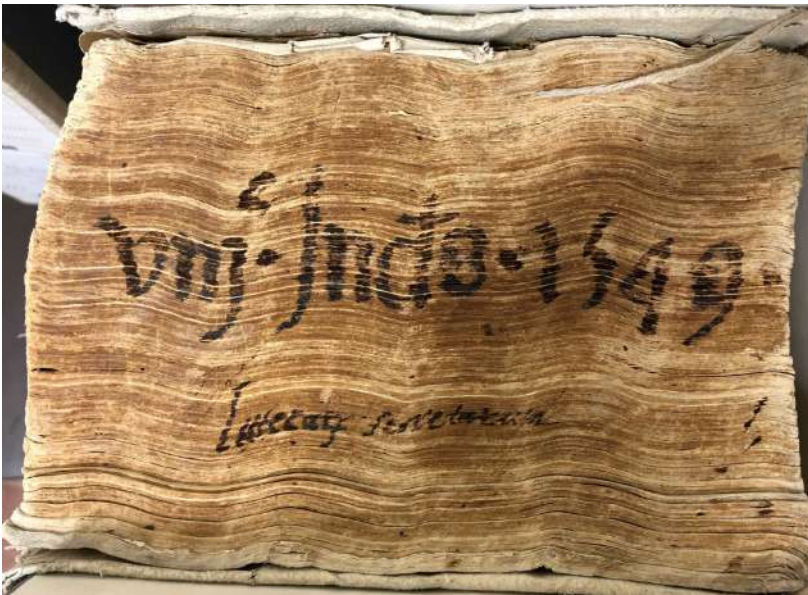 vnj · Jndo · 1549
Litterarum Secretarum